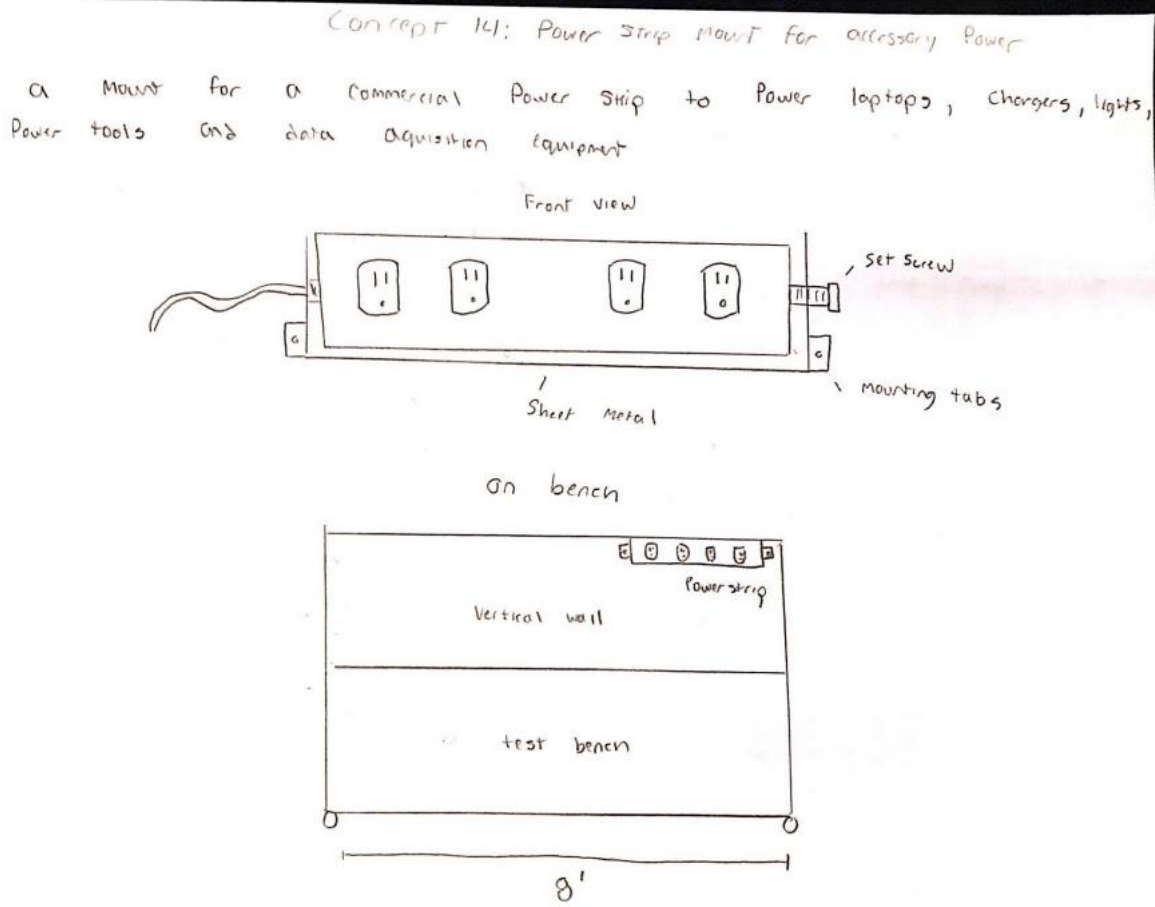 Concept 14: Power Strip Mount for accessory Power
a Mount for a Commercial Power Strip to Power laptops, Chargers, lights,
Power tools and data aquisition Equipment
Front view
Set Screw
Mounting tabs
Sheet Metal
on bench
Power strip
Vertical wall
test bench
8'